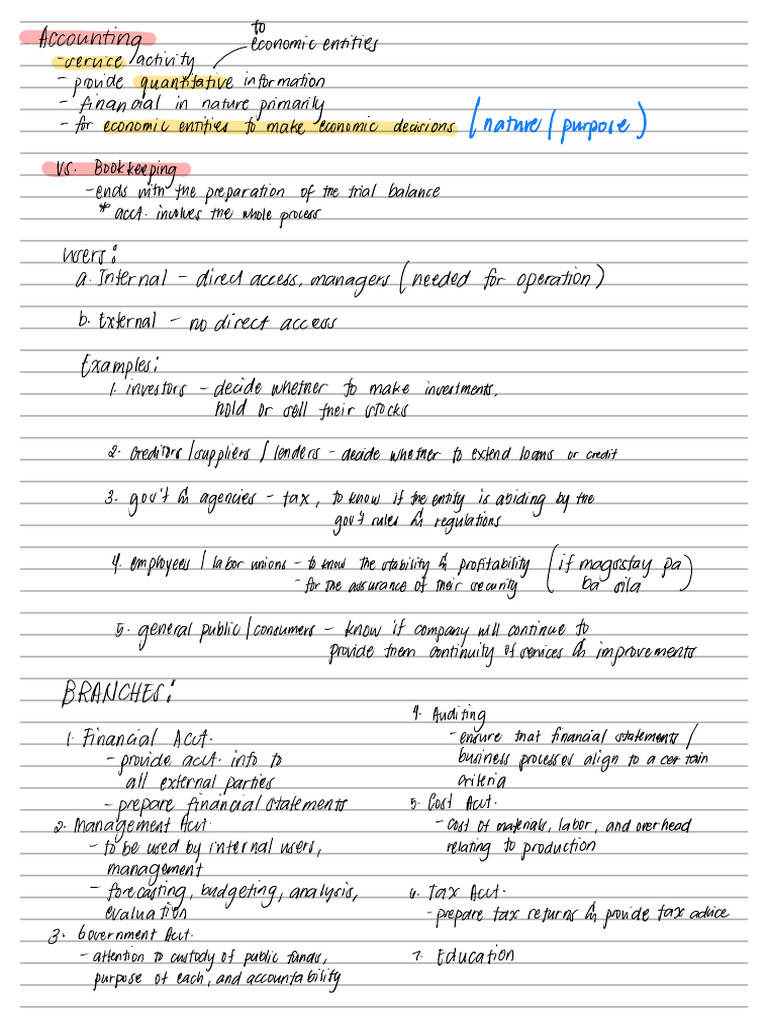 Accounting
to
economic entities
- service activity
- provide quantitative information
- financial in nature primarily
- for economic entities to make economic decisions (nature / purpose)
vs. Bookkeeping
- ends with the preparation of the trial balance
* acct. involves the whole process
users:
a. Internal - direct access, managers (needed for operation)
b. External - no direct access
Examples:
1. investors - decide whether to make investments,
hold or sell their stocks
2. creditors / suppliers / lenders - decide whether to extend loans or credit
3. gov't & agencies - tax, to know if the entity is abiding by the
gov't rules & regulations
4. employees / labor unions - to know the stability & profitability (if magsstay pa
- for the assurance of their security ba sila)
5. general public / consumers - know if company will continue to
provide them continuity of services & improvements
BRANCHES:
1. Financial Acct.
- provide acct. info to
all external parties
- prepare financial statements
2. Management Acct.
- to be used by internal users,
management
- forecasting, budgeting, analysis,
evaluation
3. Government Acct.
- attention to custody of public funds,
purpose of each, and accountability
4. Auditing
- ensure that financial statements /
business processes align to a certain
criteria
5. Cost Acct.
- cost of materials, labor, and overhead
relating to production
6. Tax Acct.
- prepare tax returns & provide tax advice
7. Education